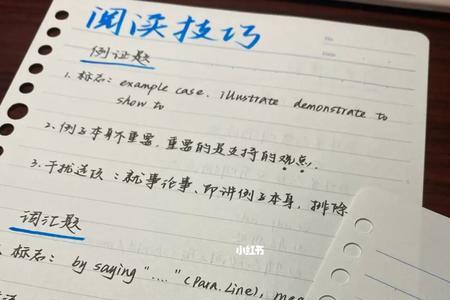 阅读技巧
例证题
1. 标志: example case. illustrate demonstrate to
show to
2. 例子本身不重要, 重要的是支持的观点!
3. 干扰选项: 就事论事、即讲例子本身, 排除
小红书
词汇题
标志: by saying "...." (Para. Line),